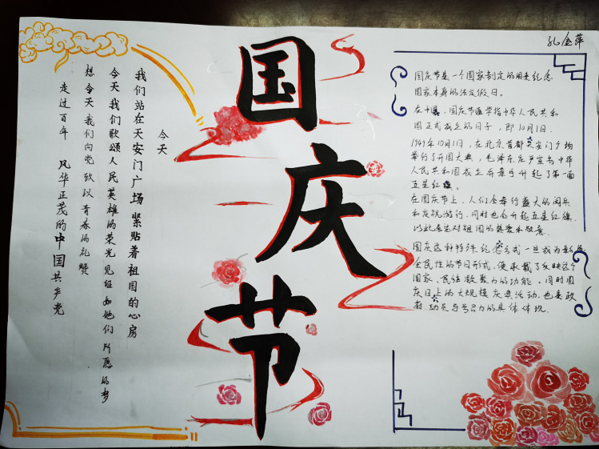 国庆节
今天
我们站在天安门广场 紧贴着祖国的心房
今天我们歌颂人民英雄的荣光 见证如他们所愿的梦
想 今天我们向党致以青春的礼赞
走过百年 风华正茂的中国共产党
国庆节是一个国家制定的用来纪念
国家本身的法定假日。
在中国,国庆节特指中华人民共和
国正式成立的日子,即10月1日.
1949年10月1日,在北京首都天安门广场
举行了开国大典,毛泽东庄严宣告中华
人民共和国成立并亲手升起了第一面
五星红旗。
在国庆节上,人们会举行盛大的阅兵
和庆祝游行,同时也会升起五星红旗,
以此来表对祖国的
国庆这种特殊纪念方式一旦成为新的
全民性的节日形式,便承载了反映这个
国家、民族凝聚力的功能,同时国
庆日上的大规模庆典活动,也是政
府动员与号召力的具体体现.